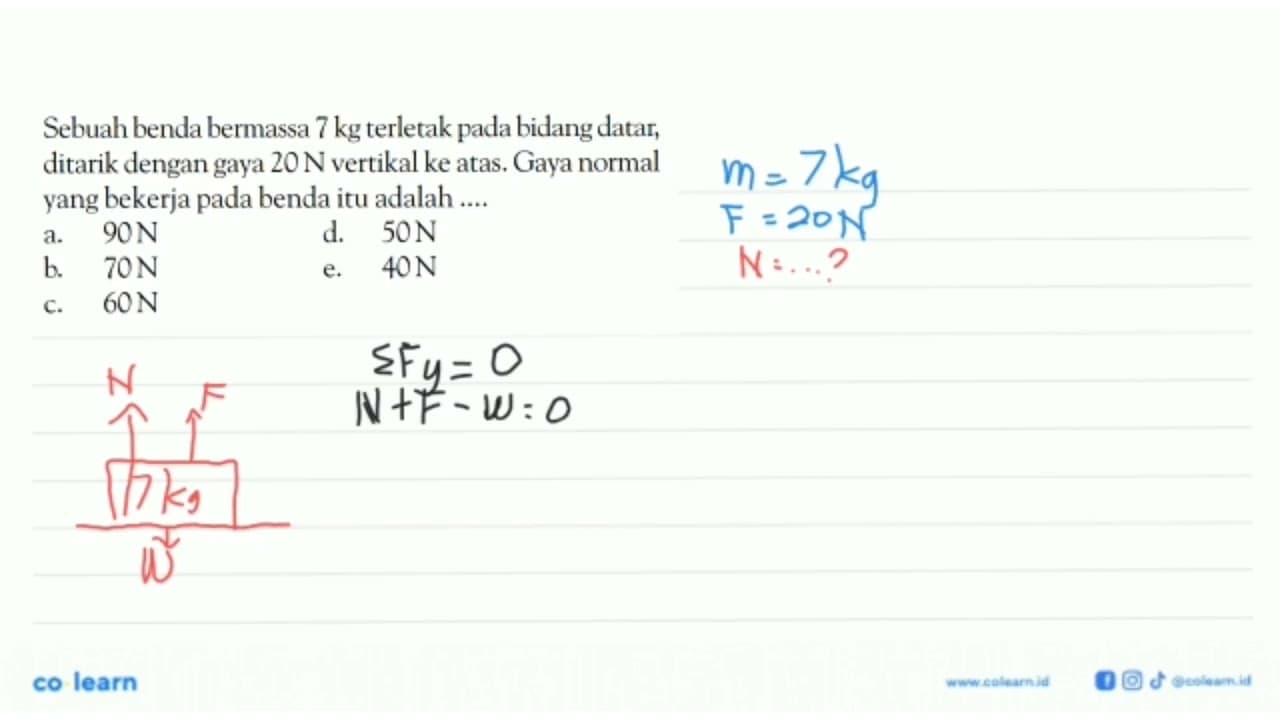 Sebuah benda bermassa 7 kg terletak pada bidang datar,
ditarik dengan gaya 20 N vertikal ke atas. Gaya normal
yang bekerja pada benda itu adalah ....
a. 90 N d. 50 N
b. 70 N e. 40 N
c. 60 N
m = 7 kg
F = 20 N
N = ...?
N F
7 kg
W
ΣFy = 0
N + F - W = 0
co learn
www.colearn.id @colearn.id